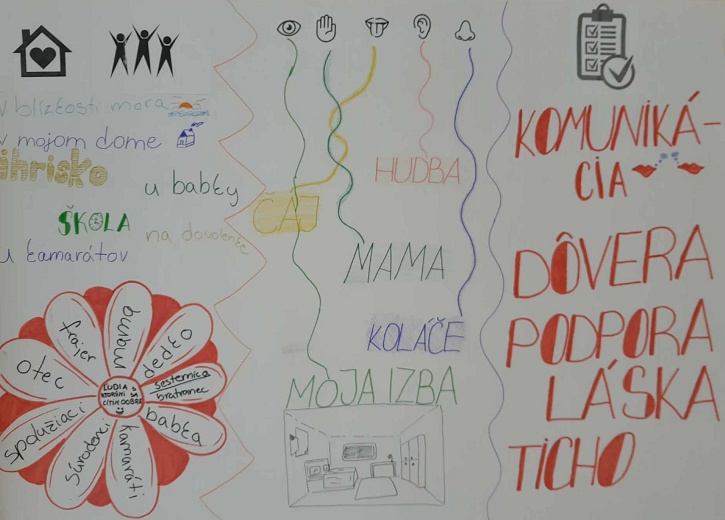 v blízkosti mora
v mojom dome
ihrisko
u babky
ŠKOLA
na dovolenke
u kamarátov
mama
dedko
sesternica
bratranec
babka
kamaráti
súrodenci
spolužiaci
otec
frajer
ĽUDIA S
KTORÝMI SA
CÍTIM DOBRE
HUDBA
ČAJ
MAMA
KOLÁČE
MOJA IZBA
KOMUNIKÁ-
CIA
DÔVERA
PODPORA
LÁSKA
TICHO